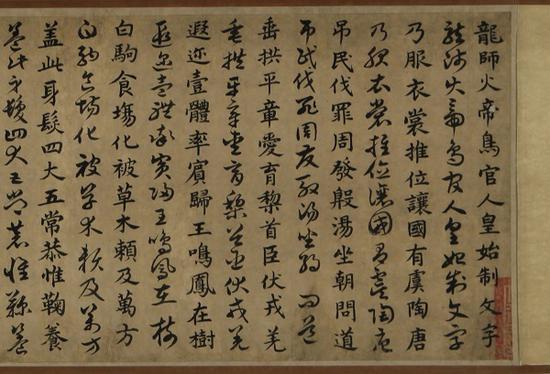 龍師火帝鳥官人皇始制文字
龍師火帝鳥官人皇始制文字
乃服衣裳推位讓國有虞陶唐
乃服衣裳推位讓國有虞陶唐
吊民伐罪周發殷湯坐朝問道
吊民伐罪周發殷湯坐朝問道
垂拱平章愛育黎首臣伏戎羌
垂拱平章愛育黎首臣伏戎羌
遐迩壹體率賓歸王鳴鳳在樹
遐迩壹體率賓歸王鳴鳳在樹
白駒食塲化被草木賴及萬方
白駒食塲化被草木賴及萬方
蓋此身髮四大五常恭惟鞠養
蓋此身髮四大五常恭惟鞠養